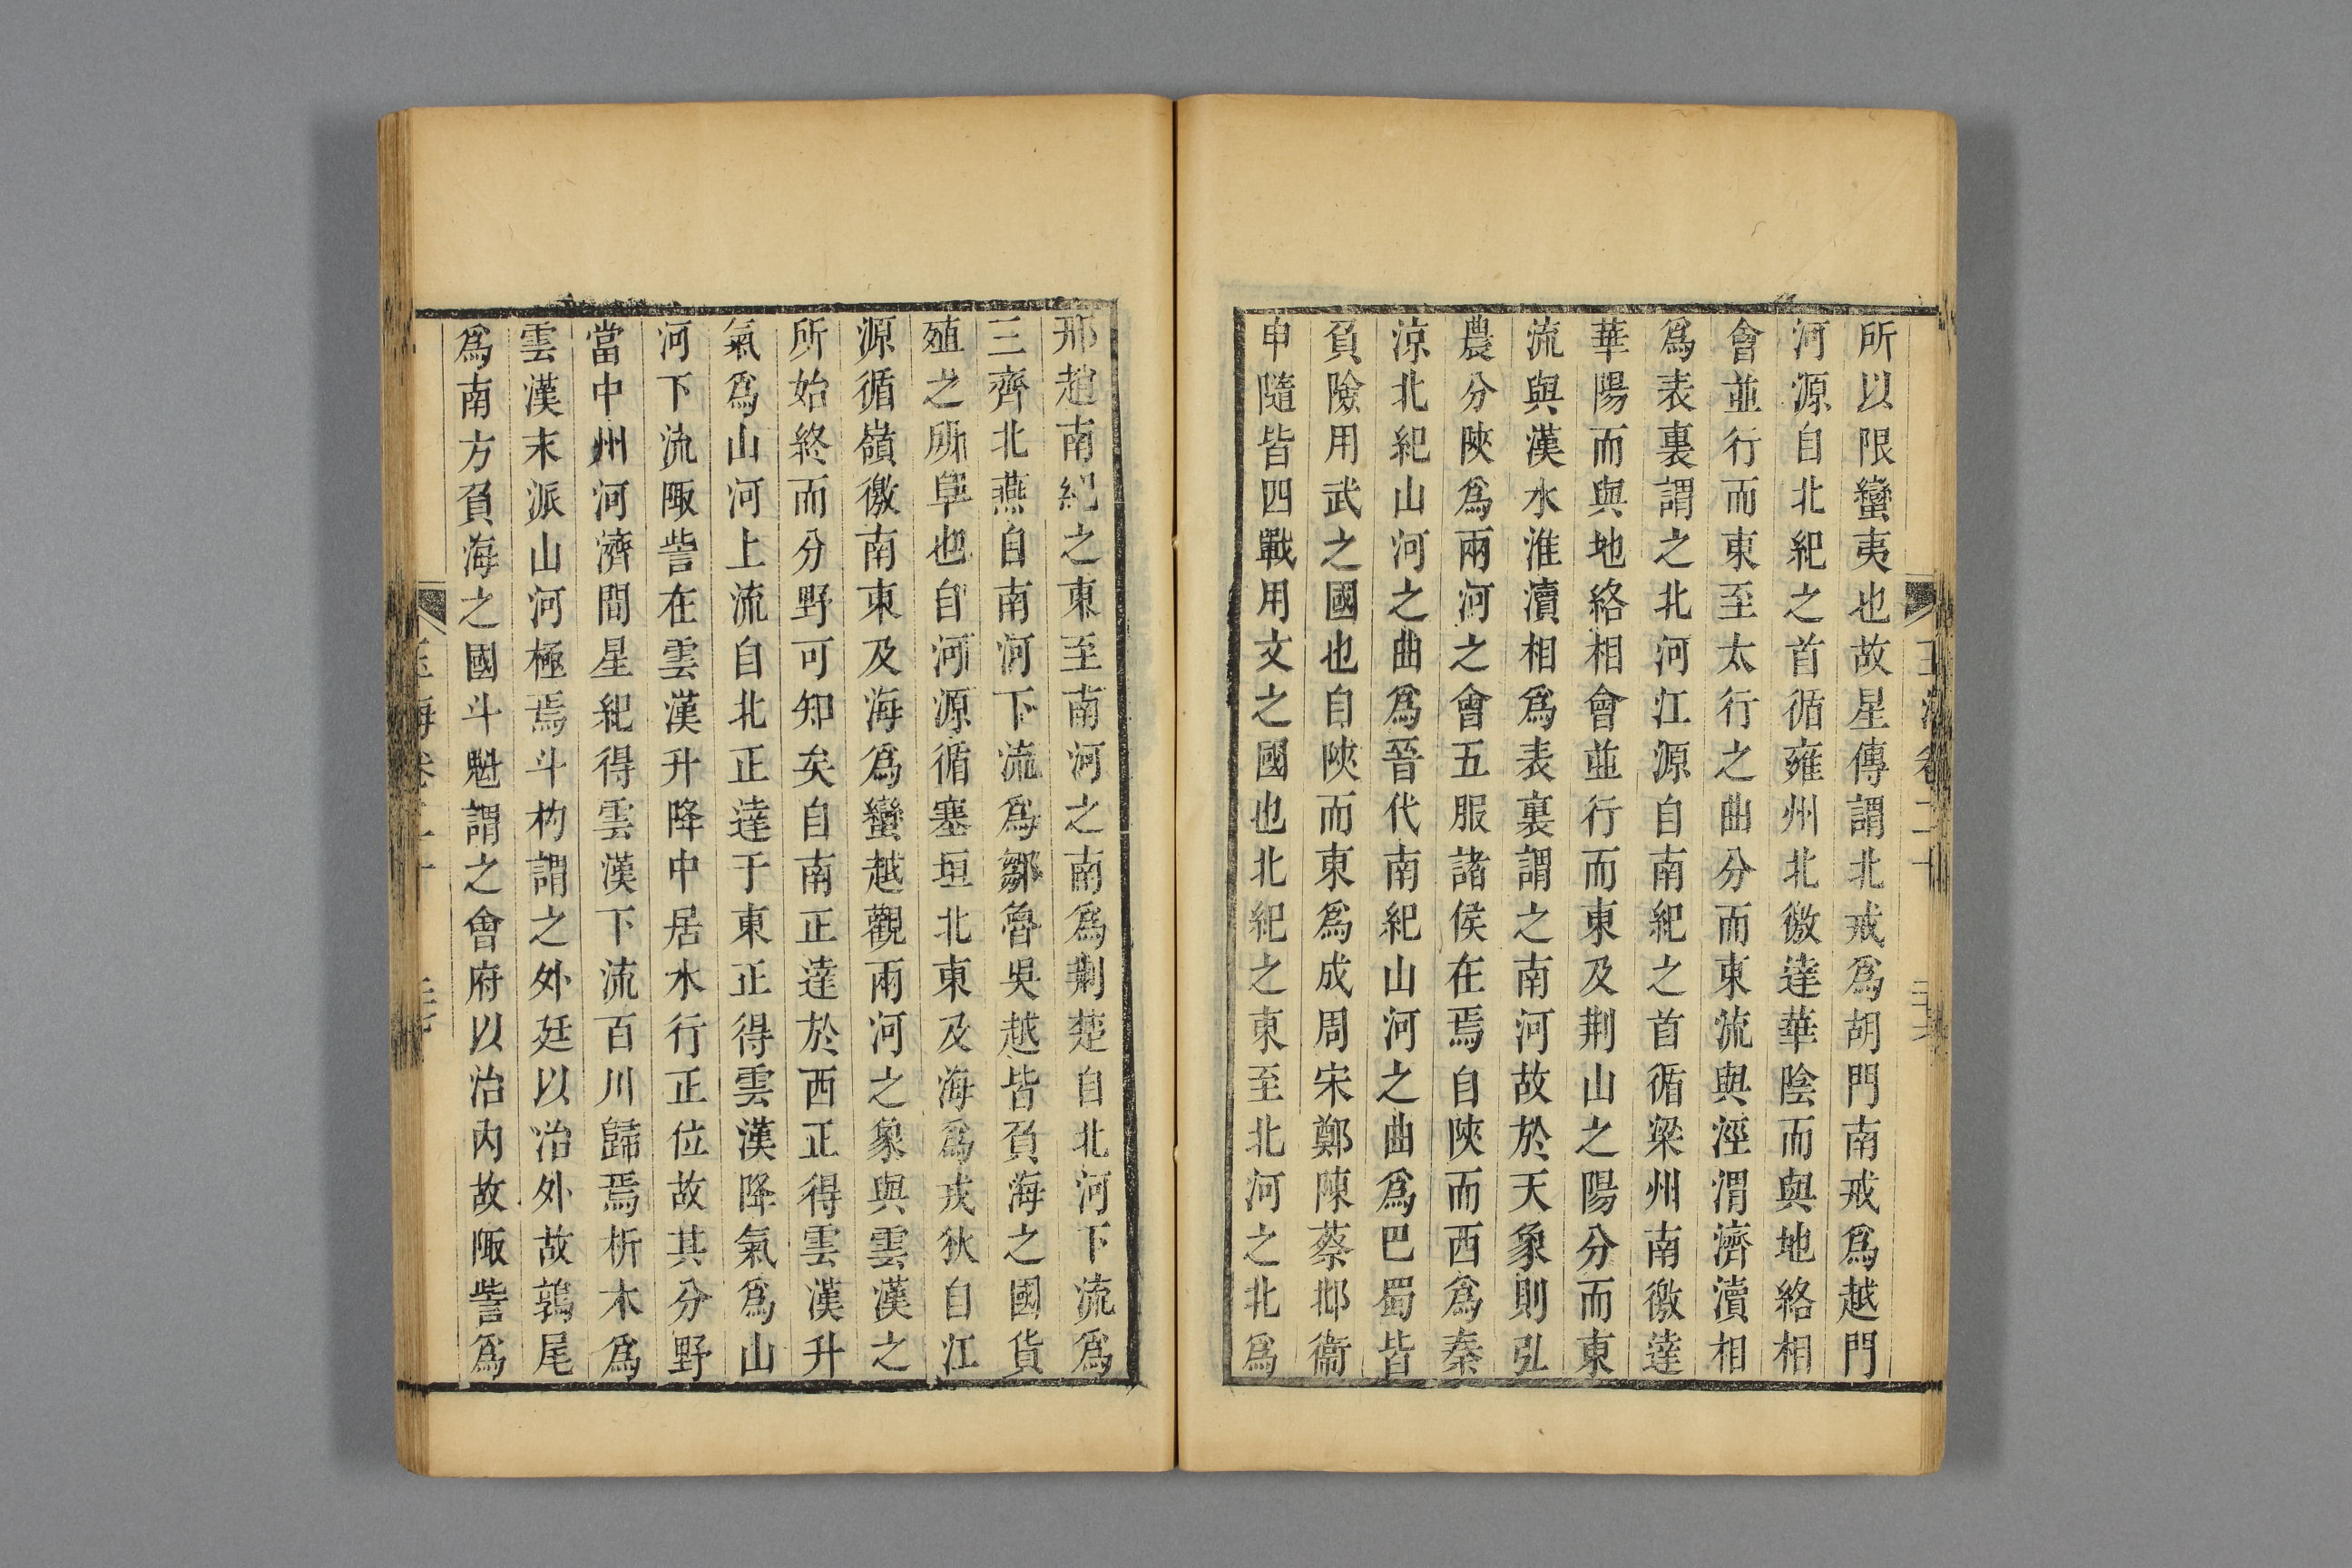 所以限蠻夷也故星傳謂北戒爲胡門南戒爲越門
河源自北紀之首循雍州北徼達華陰而與地絡相
會並行而東至太行之曲分而東流與涇渭濟瀆相
爲表裏謂之北河江源自南紀之首循梁州南徼達
華陽而與地絡相會並行而東及荆山之陽分而東
流與漢水淮瀆相爲表裏謂之南河故於天象則弘
農分陜爲兩河之會五服諸侯在焉自陜而西爲秦
涼北紀山河之曲爲晉代南紀山河之曲爲巴蜀皆
負險用武之國也自陜而東爲成周宋鄭陳蔡邶衞
申隨皆四戰用文之國也北紀之東至北河之北爲
邢趙南紀之東至南河之南爲荆楚自北河下流爲
三齊北燕自南河下流爲鄒魯吳越皆負海之國貨
殖之所阜也自河源循塞垣北東及海爲戎狄自江
源循嶺徼南東及海爲蠻越觀兩河之象與雲漢之
所始終而分野可知矣自南正達於西正得雲漢升
氣爲山河上流自北正達于東正得雲漢降氣爲山
河下流陬訾在雲漢升降中居水行正位故其分野
當中州河濟間星紀得雲漢下流百川歸焉析木爲
雲漢末派山河極焉斗杓謂之外廷以治外故鶉尾
爲南方負海之國斗魁謂之會府以治內故陬訾爲